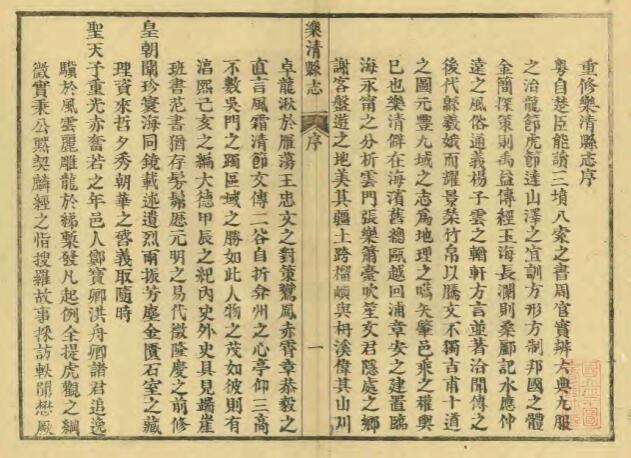 重修樂清縣志序
粵自楚臣能讀三墳八索之書周官實辨大典九服
之治龍節虎節達山澤之宜訓方形方制邦國之體
金簡探策則禹益傳經玉海長瀾則桑酈記水應仲
遠之風俗通義楊子雲之輶軒方言並著洽聞傳之
後代繇羲娥而耀景榮竹帛以騰文不獨古甫十道
之圖元豐九域之志為地理之嚆矢肇邑乘之權輿
已也樂清僻在海濱舊總甌越回浦章安之建置臨
海永甯之分析雲門張樂簫臺吹笙文君隱處之鄉
謝客盤遊之地美其疆土跨㯿嶼與枏溪偉其山川
樂清縣志
序
一
卓龍湫於雁蕩王忠文之對策鸞鳳赤霄章恭毅之
直言風霜清節文傳二谷自折弇州之心亭仰三高
不數吳門之躅區域之勝如此人物之茂如彼則有
淊熙己亥之編大德甲辰之紀內史外史具見端崖
班書范書猶存髣髴歷元明之易代徵隆慶之前修
皇朝闡珍寰海同鏡載述遺烈兩振芳塵金匱石室之藏
理資來哲夕秀朝華之啓義取隨時
聖天子重光赤奮若之年邑人鄭寶卿洪舟卿諸君追逸
驥於風雲麗雕龍於綈槧發凡起例全提虎觀之綱
徵實秉公默契麟經之恉搜羅故事採訪軼聞懋厥